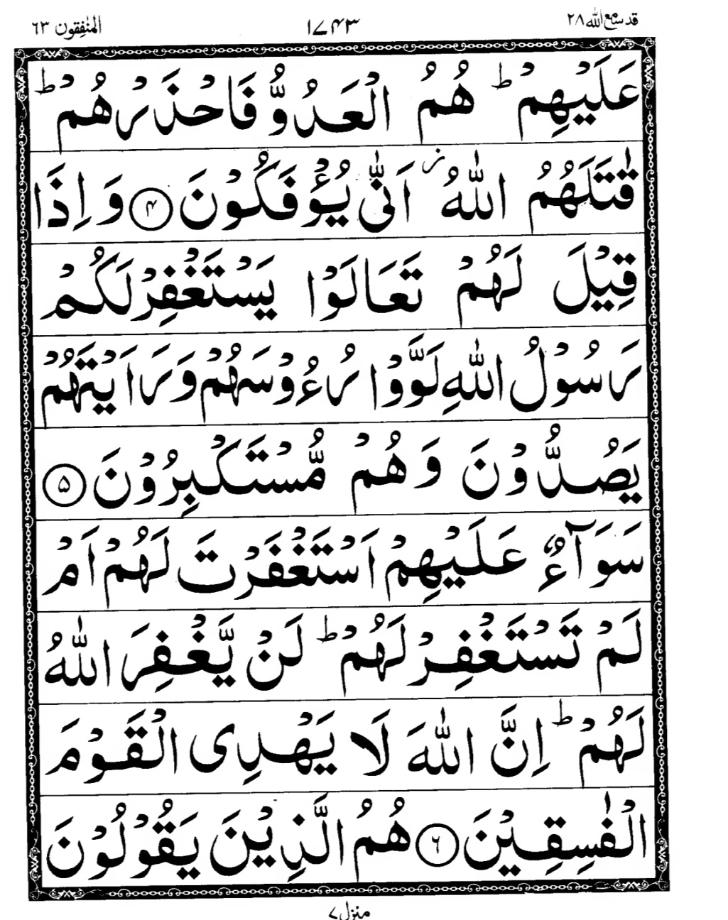 قد سمع الله ۲۸ ۱۷۴۳ المنٰفقون ۶۳
عَلَيۡهِمۡ ؕ هُمُ الۡعَدُوُّ فَاحۡذَرۡهُمۡ ؕ
قٰتَلَهُمُ اللّٰهُ ۫ اَنّٰى يُؤۡفَكُوۡنَ ﴿۴﴾ وَ اِذَا
قِيۡلَ لَهُمۡ تَعَالَوۡا يَسۡتَغۡفِرۡ لَكُمۡ
رَسُوۡلُ اللّٰهِ لَوَّوۡا رُءُوۡسَهُمۡ وَ رَاَيۡتَهُمۡ
يَصُدُّوۡنَ وَ هُمۡ مُّسۡتَكۡبِرُوۡنَ ﴿۵﴾
سَوَآءٌ عَلَيۡهِمۡ اَسۡتَغۡفَرۡتَ لَهُمۡ اَمۡ
لَمۡ تَسۡتَغۡفِرۡ لَهُمۡ ؕ لَنۡ يَّغۡفِرَ اللّٰهُ
لَهُمۡ ؕ اِنَّ اللّٰهَ لَا يَهۡدِى الۡقَوۡمَ
الۡفٰسِقِيۡنَ ﴿۶﴾ هُمُ الَّذِيۡنَ يَقُوۡلُوۡنَ
منزل ۷